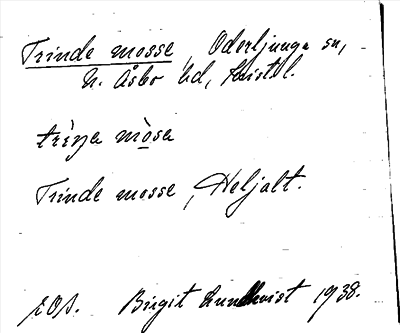 Trinde mosse, Oderljunga sn,
N. Åsbo hd, Kristl.
trìṇa mò̤sa
Trinde mosse, Heljalt.
Birgit Lundkvist 1938.